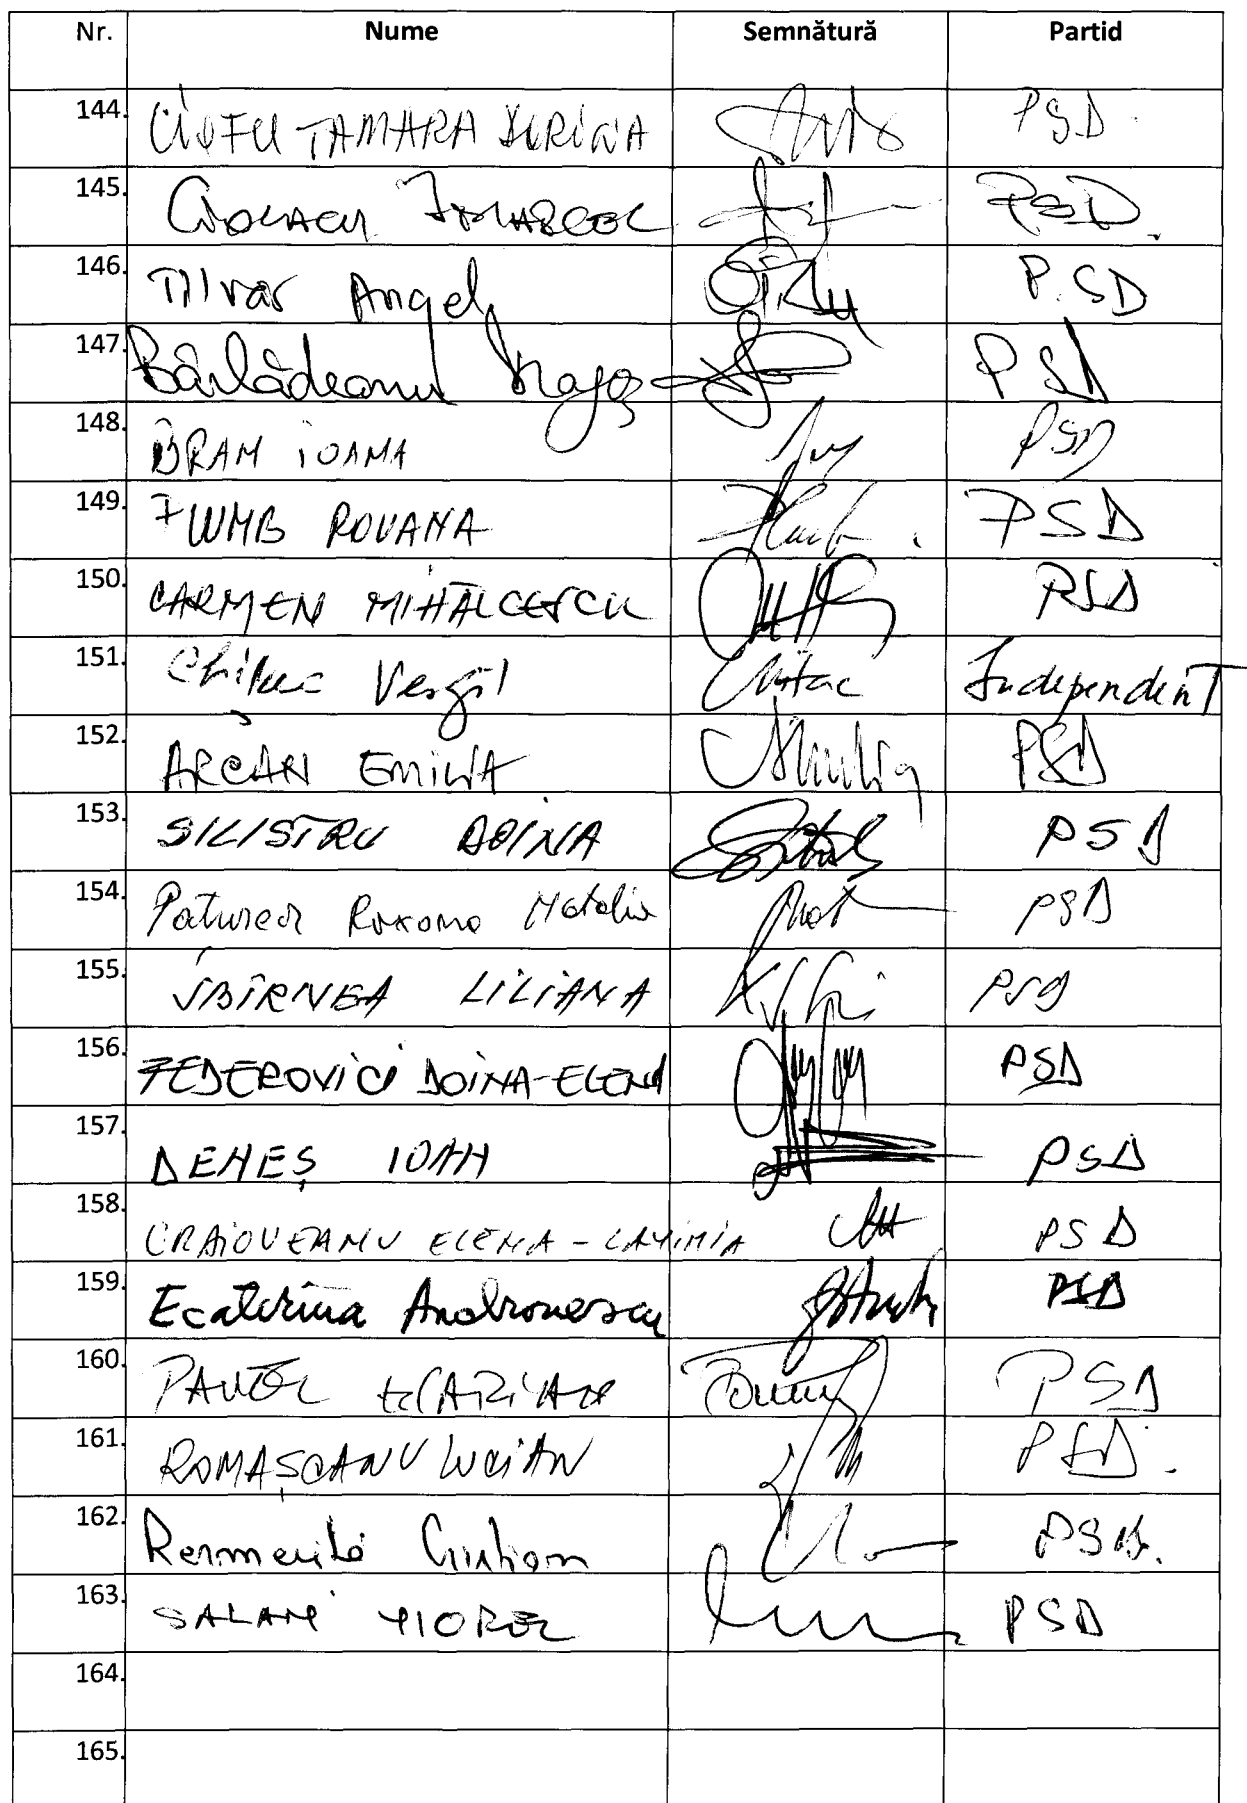 Nr. Nume Semnătură Partid
144. CIOFU TAMARA DORINA PSD
145. CIOLACU I. MARCEL PSD.
146. Tîlvăr Angel P.SD
147. Bârlădeanu Dragoș PSD
148. BRAN IOANA PSD
149. PLUMB ROVANA PSD
150. CARMEN MIHĂLCESCU PSD
151. Chițac Vergil Chitac Independent
152. ARCAN EMILIA PSD
153. SILISTRU DOINA PSD
154. Paturca Roxana Natalia PSD
155. SBÎRNEA LILIANA PSD
156. FEDEROVICI DOINA-ELENA PSD
157. DENEȘ IOAN PSD
158. CRAIOVEANU ELENA-LAVINIA PSD
159. Ecaterina Andronescu PSD
160. PAVEL PSD
161. ROMAȘCANU LUCIAN PSD.
162. PSD.
163. SALAN VIOREL PSD
164.
165.